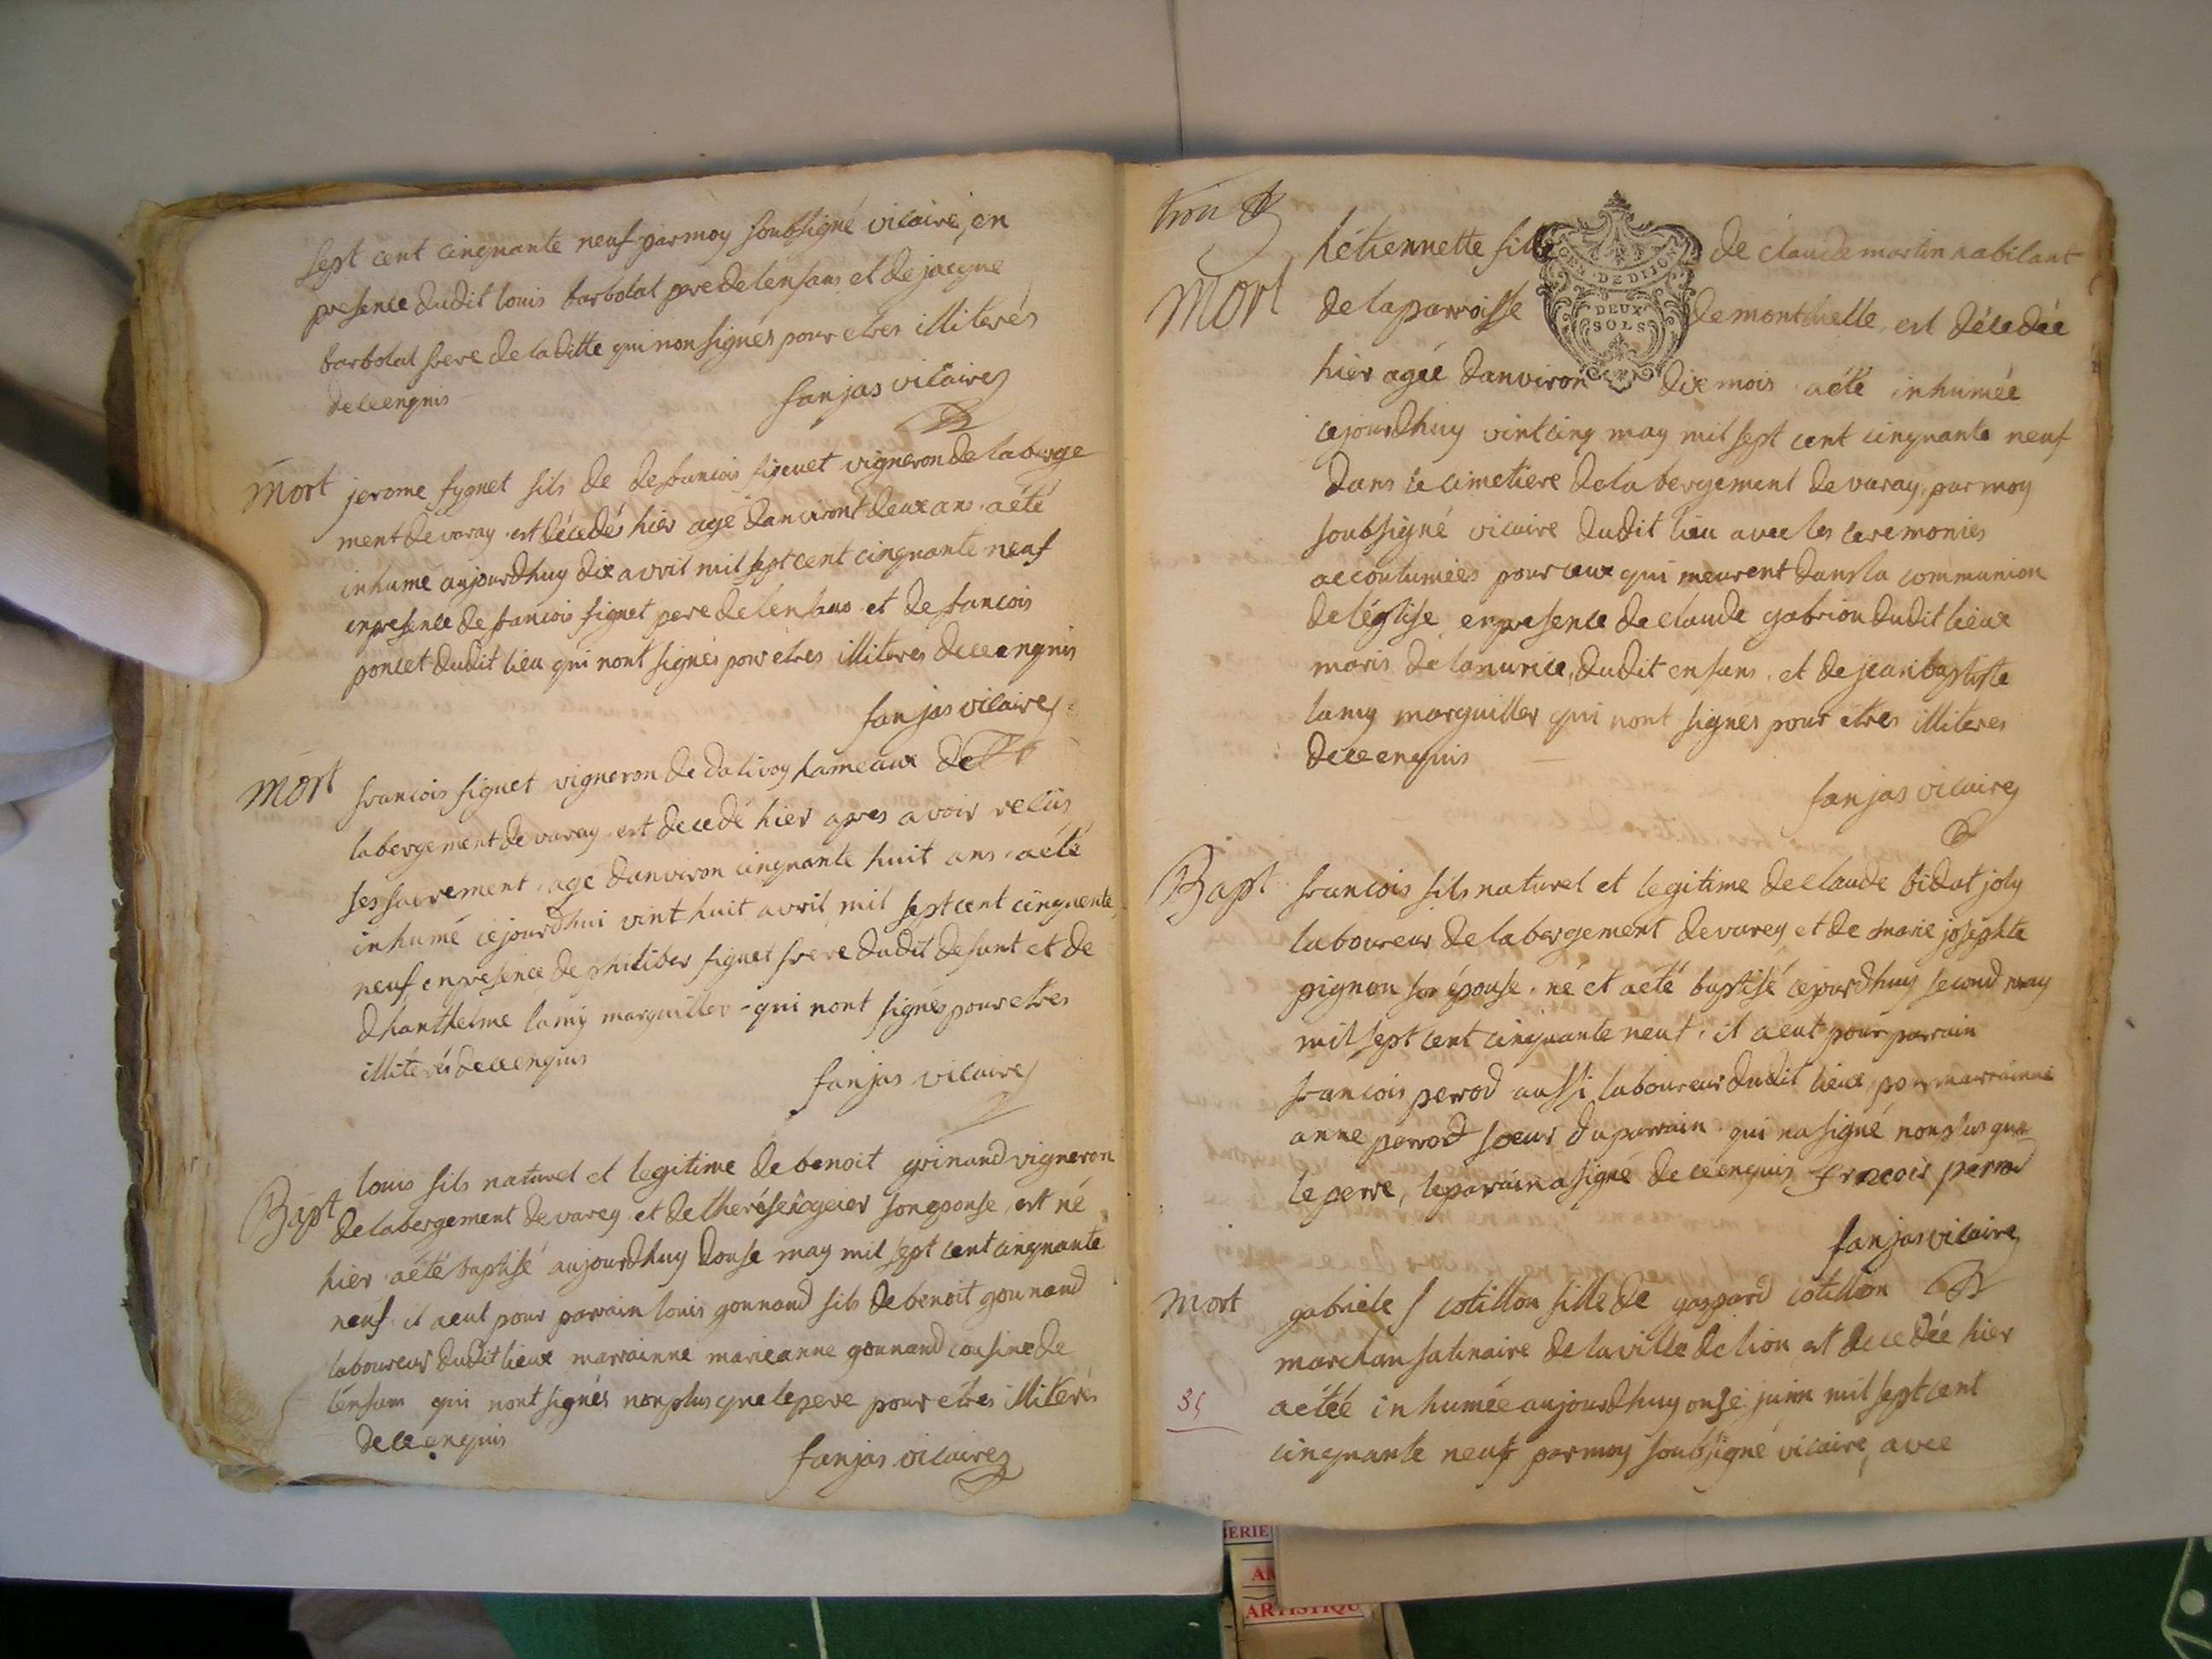 sept cent cinquante neuf par moy soubsigné vicaire, en
presence dudit louis barbolat pere de lenfans et de jacque
barbolat frere de laditte qui non signés pour etres illiterés
de ce enquis
fanjas vicaire
Mort
jerome fyguet fils de de francois figeuet vigneron de laberge
ment de varay est décedés hier agé danviront deux ans a été
inhumé aujourdhuy dix avril mil sept cent cinquante neuf
en presence de francois figuet pere de lenfans et de francois
poncet dudit lieu qui nont signés pour etres illiteres de ce enquis
fanjas vicaire
Mort
francois figuet vigneron de dalivoy hameaux de
labergement de varay est decedé hier apres avoir recus
ses sacrement, agé danviron cinquante huit ans a été
inhumé cejourdhui vint huit avril mil sept cent cinquente
neuf en presence de philiber figuet frere dudit defunt et de
dhanthelme lamy marguiller qui nont signés pour etres
illiterés de ce enquis
fanjas vicaire
Bapt
louis fils naturel et legitime de benoit grinand vigneron
de labergement de varey et de therése rogeier son eponse, est né
hier a été baptisé aujourdhuy douse may mil sept cent cinquante
neuf il a eut pour parrain louis gounand fils de benoit gounand
laboureur dudit lieux marrainne marieanne gounand cousine de
lénfam qui nont signés non plus que le pere pour étres illiterés
de ce enquis
fanjas vicaire
Mort
hétiennette fille de claude martin habitant
GEN. DE DIJON
DEUX
SOLS
de la parroisse de montluelle, est décedée
hier ageé danviron dix mois a été inhumée
cejourdhuy vint cinq may mil sept cent cinquante neuf
dans le cimetiere de labergement de varay, par moy
soubsigné vicaire dudit lieu avec les ceremonies
accoutumées pour ceux qui meurent dans la communion
de léglise en presence de claude gabrion dudit lieux
maris de la nurice, dudit enfans, et de jean baptiste
lamy marguiller qui nont signés pour etres illiteres
de ce enquis
fanjas vicaire
Bapt
francois fils naturel et legitime de claude bidat joly
laboureur de labergement de varey et de marie josephte
pignon son épouse, né et a eté baptisé cejourdhuy second may
mil sept cent cinquante neuf, il a eut pour parrain
francois perrod aussi laboureur dudit lieux, pour marrainne
anne perrod soeur du parrain qui na signé non plus que
le perre, le parrain a signé de ce enquis francois perrod
fanjas vicaire
Mort
gabriele / cotillon fille de gaspard cotillon
marchan satinaire de la ville de lion est decedée hier
a étée inhumée aujourdhuy onze juinn mil sept cent
cinquante neuf par moy soubsigné vicaire, avec